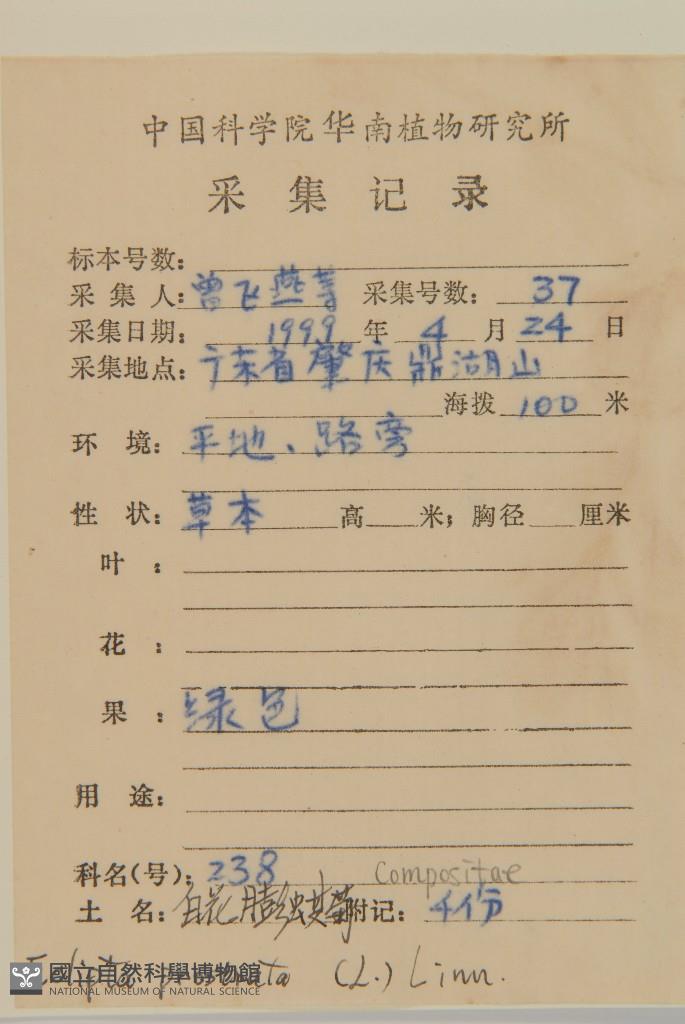 中国科学院华南植物研究所
采集记录
标本号数：
采集人：曾飞燕等 采集号数：37
采集日期：1999年4月24日
采集地点：广东省肇庆鼎湖山
海拨 100 米
环境：平地、路旁
性状：草本 高 米；胸径 厘米
叶：
花：
果：绿色
用途：
科名(号)：238 Compositae
土名：白花 附记：4份
(L.) Linn.
國立自然科學博物館
NATIONAL MUSEUM OF NATURAL SCIENCE